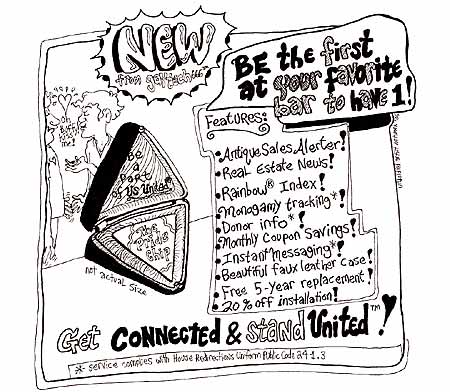 NEW
from gaytech
BE the first
at your favorite
bar to have 1!
Features:
• Antique Sales Alerter!
• Real Estate News!
• Rainbow® Index!
• Monogamy tracking*!
• Donor info*!
• Monthly Coupon Savings!
• Instant Messaging*!
• Beautiful faux leather case!
• Free 5-year replacement!
• 20% off installation!
Be
a
Part
of Us Under
the
Pride
Chip
not actual size
Get CONNECTED & Stand United™!
*- service complies with House Redirections Uniform Public Code 24.1.3